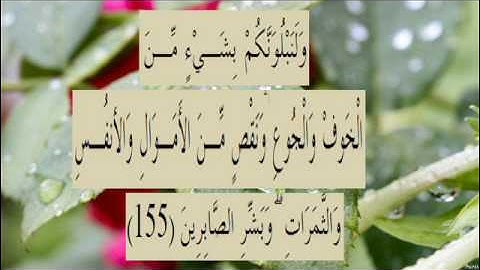 وَلَنَبْلُوَنَّكُمْ بِشَـــيْءٍ مِّـــنَ
الْخَوفْ وَالْجُوعِ وَنَقْصٍ مِّـــنَ الأَمَـــوَالِ وَالأنفُـــسِ
وَالثَّمَرَاتِ ۗ وَبَشِّرِ الصَّابِرِينَ (155)